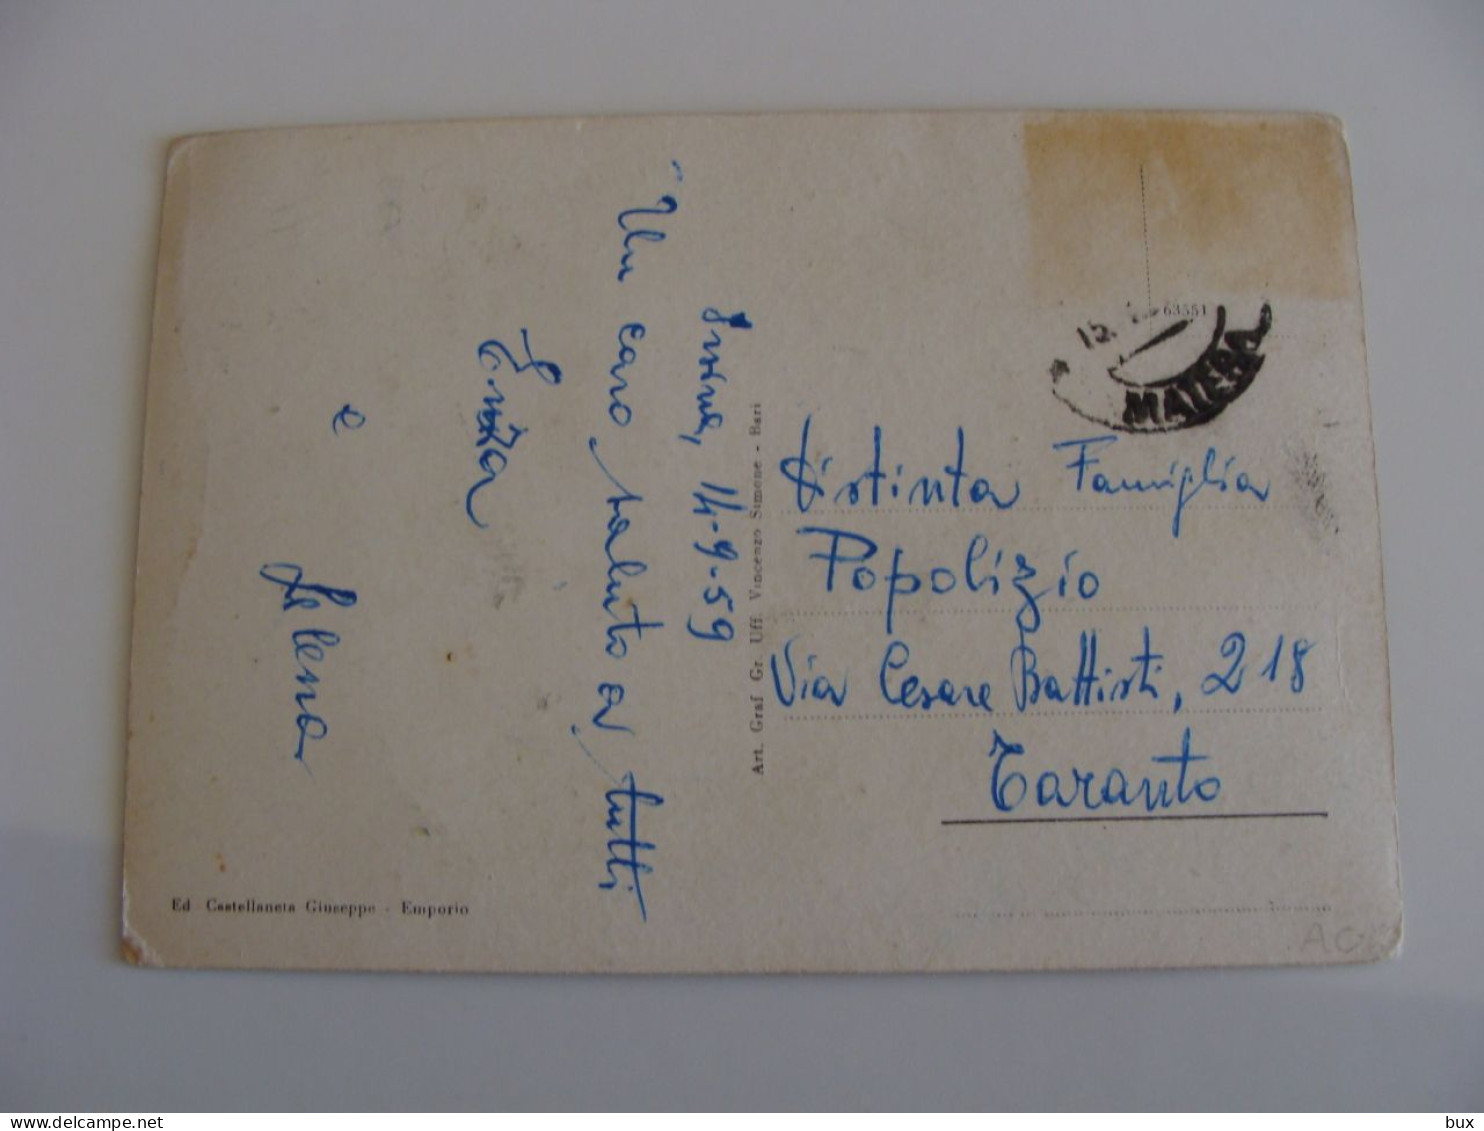 Irsina, 14-9-59
Un caro saluto a tutti
Enza
e
Filena
Art. Graf Gr. Uff. Vincenzo Simone - Bari
Ed Castellaneta Giuseppe - Emporio
63551
15.
MATERA
Distinta Famiglia
Popolizio
Via Cesare Battisti, 218
Taranto
bux